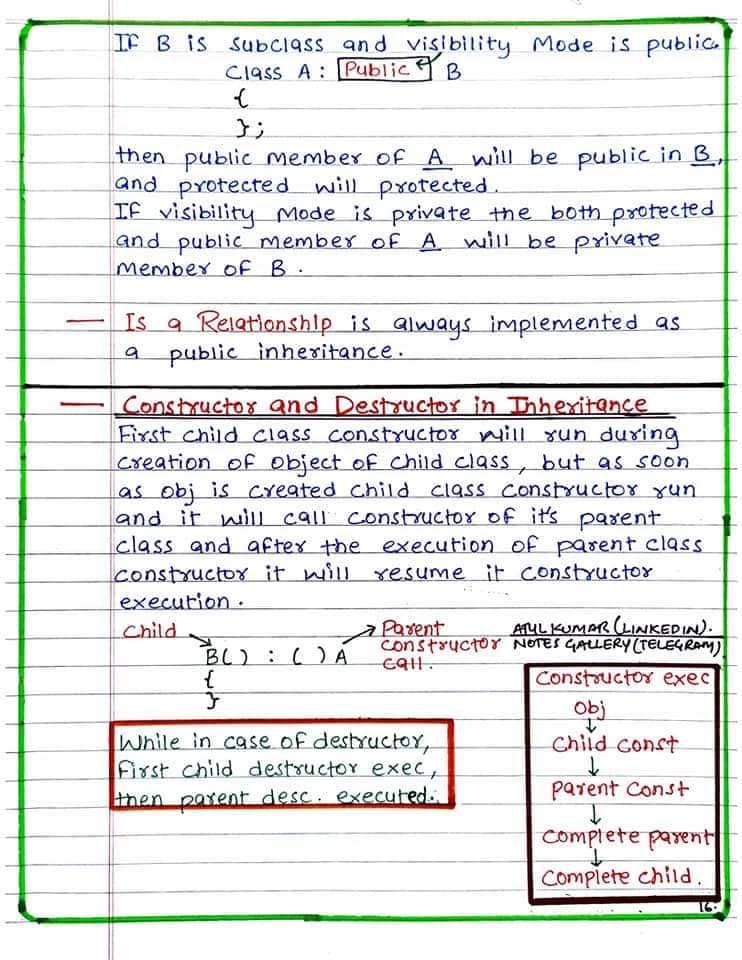 If B is subclass and visibility Mode is public.
Class A : Public B
{
};
then public member of A will be public in B,
and protected will protected.
If visibility Mode is private the both protected
and public member of A will be private
member of B.
— Is a Relationship is always implemented as
a public inheritance.
— Constructor and Destructor in Inheritance
First child class constructor will run during
creation of object of child class, but as soon
as obj is created child class constructor run
and it will call constructor of it's parent
class and after the execution of parent class
constructor it will resume it constructor
execution.
Child
B( ) : ( ) A
{
}
Parent
constructor
call.
ATUL KUMAR (LINKEDIN).
NOTES GALLERY (TELEGRAM)
While in case of destructor,
First child destructor exec,
then parent desc. executed.
Constructor exec
Obj
↓
Child Const
↓
Parent Const
↓
Complete parent
↓
Complete child.
16.